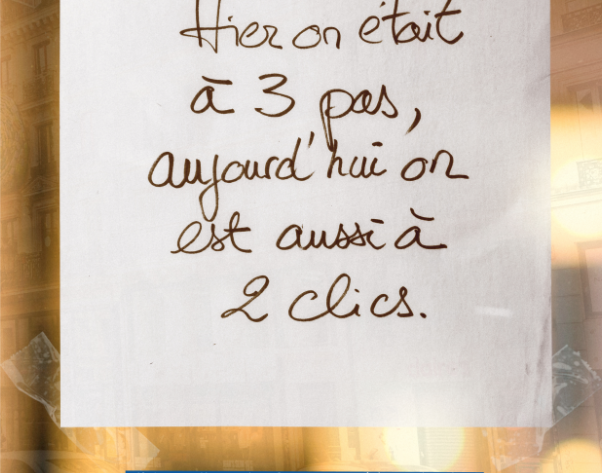 Hier on était
à 3 pas,
aujourd'hui on
est aussi à
2 clics.